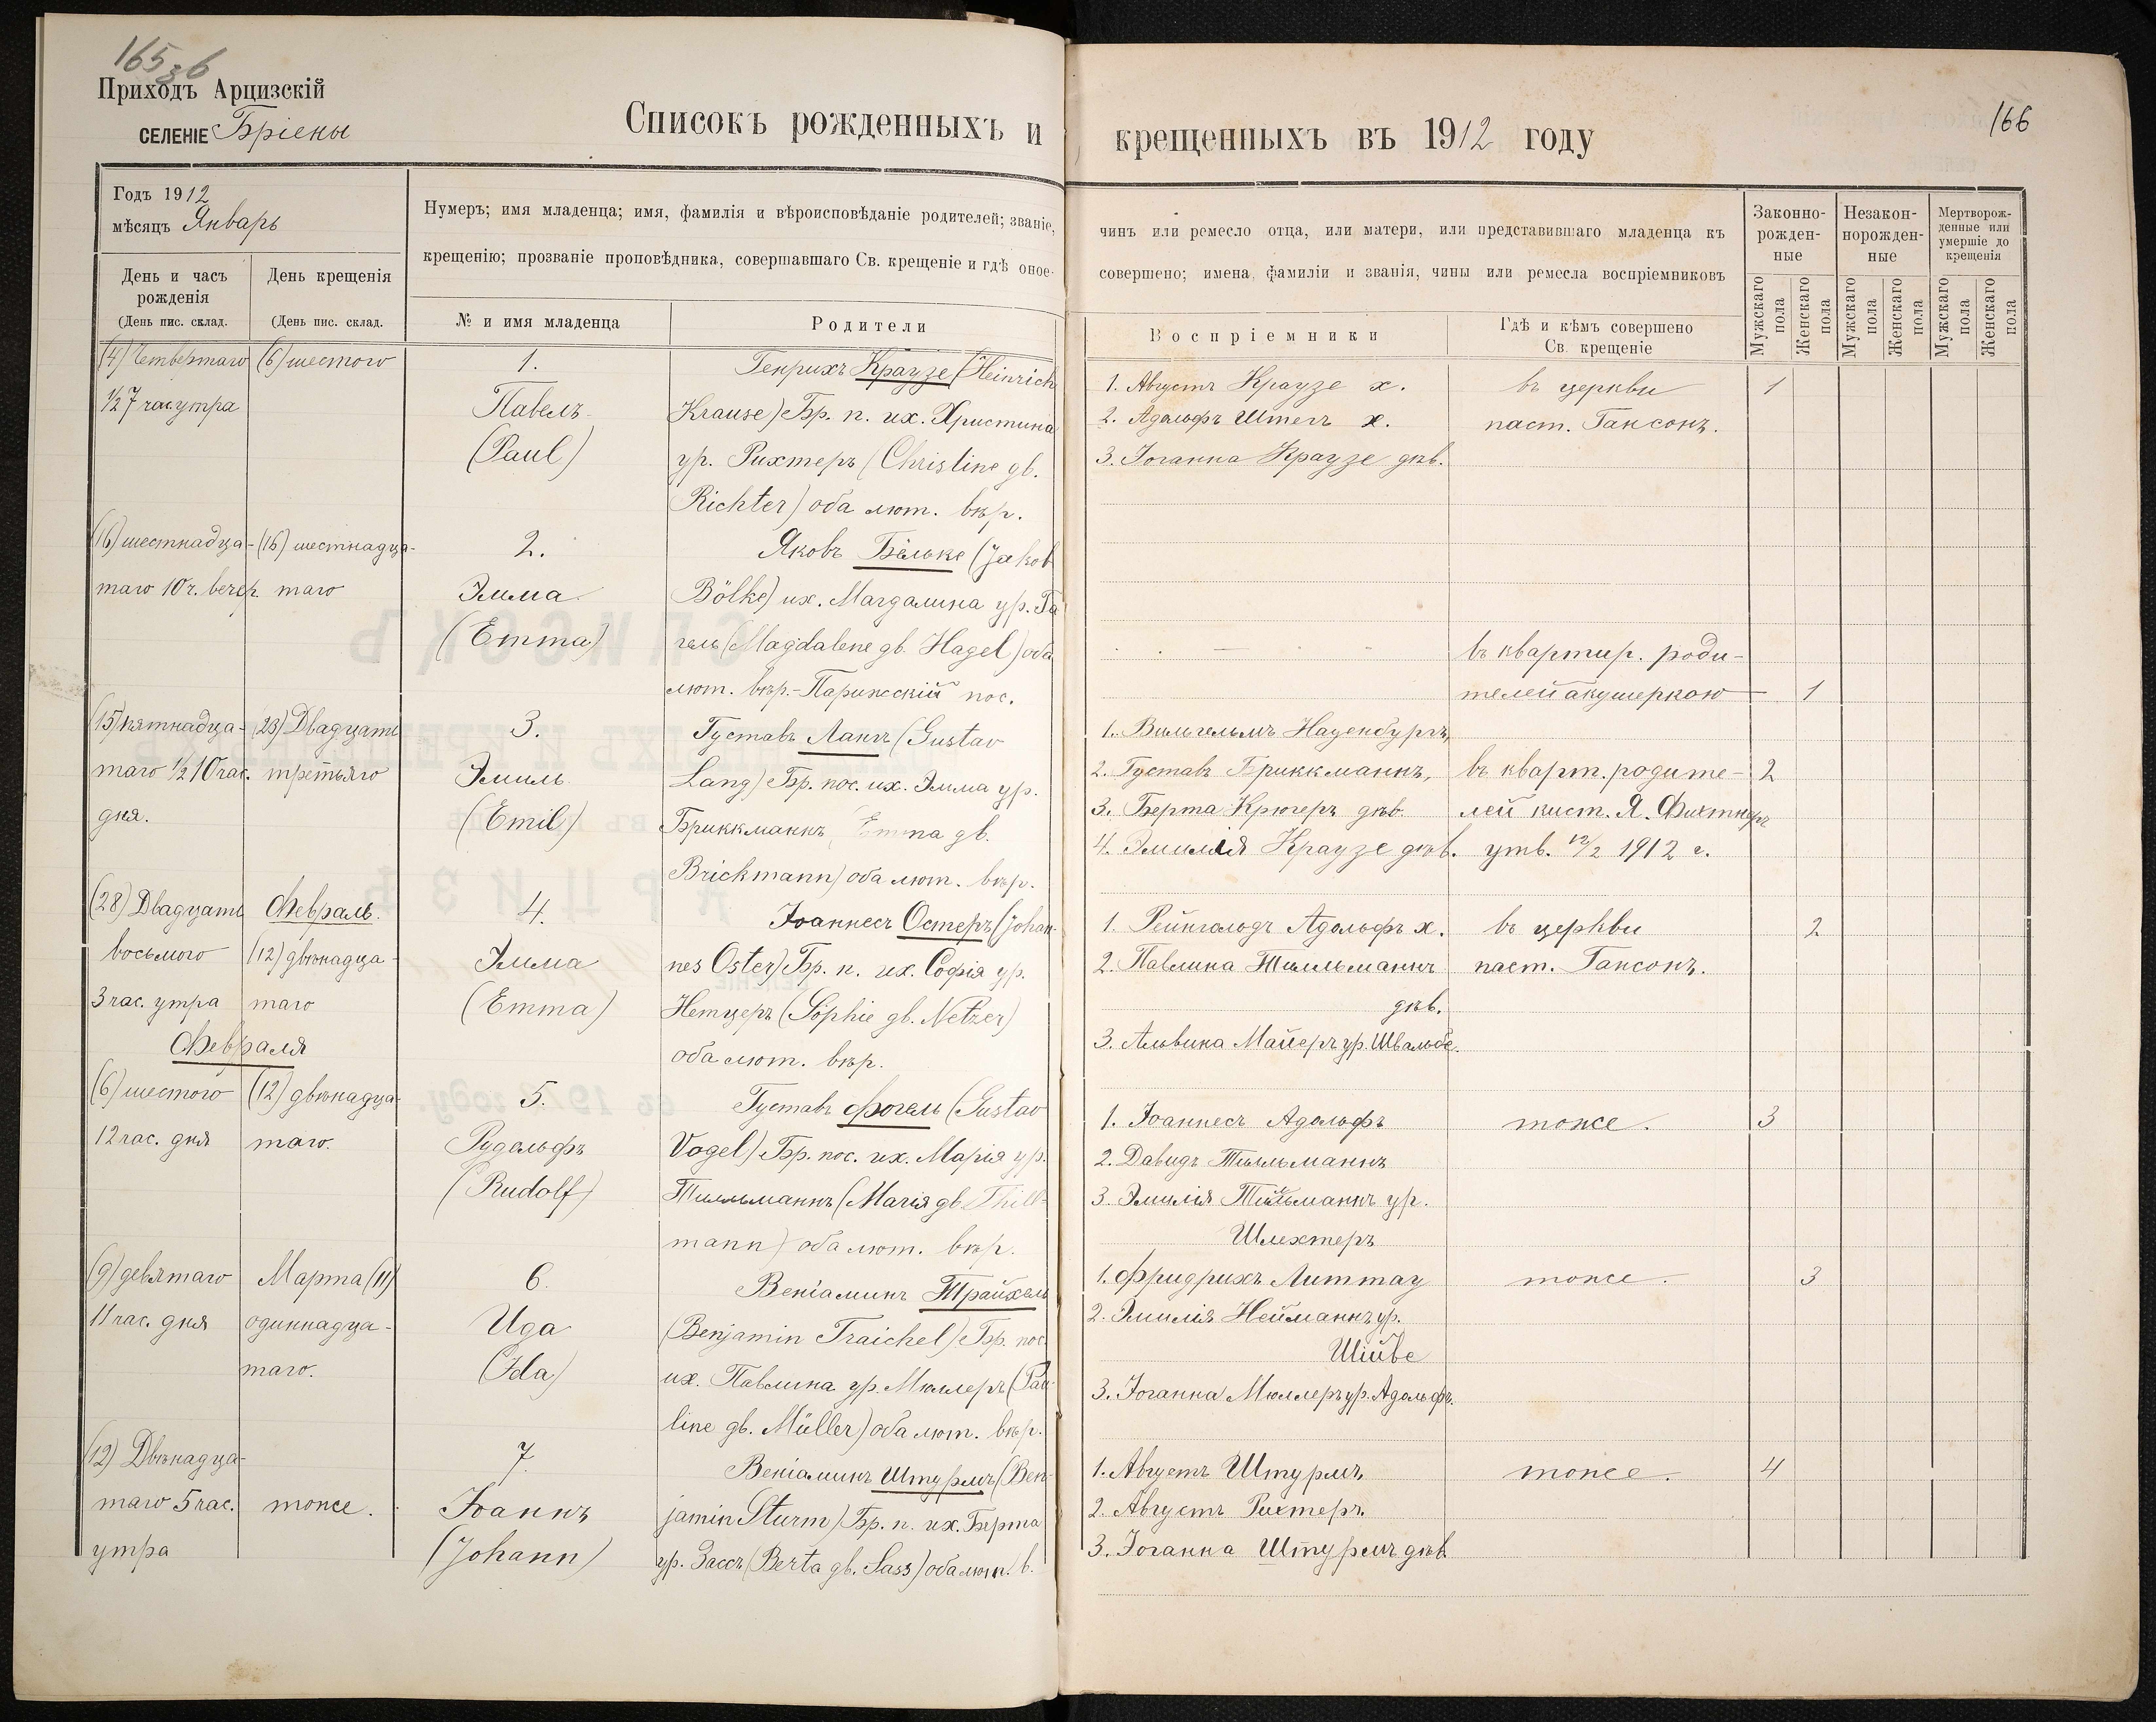 165 об
Приходъ Арцизскій
СЕЛЕНІЕ Бріены
Списокъ рожденныхъ и крещенныхъ въ 1912 году
166
Годъ 1912
мѣсяцъ Январь
День и часъ рожденія
(День пис. склад.
День крещенія
(День пис. склад.
Нумеръ; имя младенца; имя, фамилія и вѣроисповѣданіе родителей; званіе,
крещенію; прозваніе проповѣдника, совершавшаго Св. крещеніе и гдѣ оное
№ и имя младенца
Родители
чинъ или ремесло отца, или матери, или представившаго младенца къ
совершено; имена, фамиліи и званія, чины или ремесла воспріемниковъ
Воспріемники
Гдѣ и кѣмъ совершено
Св. крещеніе
Законно-
рожден-
ные
Незакон-
норожден-
ные
Мертворож-
денные или
умершіе до
крещенія
Мужскаго пола
Женскаго пола
Мужскаго пола
Женскаго пола
Мужскаго пола
Женскаго пола
(4) четвертаго
½7 час. утра
(6) шестого
1.
Павелъ
(Paul)
Генрихъ Краузе (Heinrich
Krause) Бр. п. их. Христина
ур. Рихтеръ (Christine gb.
Richter) оба лют. вѣр.
1. Августъ Краузе х.
2. Адольфъ Штегъ х.
3. Іоганна Краузе дѣв.
въ церкви
паст. Гансонъ.
1
(16) шестнадца-
таго 10 ч. вечер.
(16) шестнадца-
таго
2.
Эмма
(Emma)
Яковъ Бёльке (Jakob
Bölke) их. Магдалина ур. Га
гель (Magdalene gb. Hagel) оба
лют. вѣр. - Парижскій пос.
въ квартир. роди-
телей акушеркою
1
(15) пятнадца-
таго ½10 час.
дня.
(23) Двадцать
третьяго
3.
Эмиль
(Emil)
Густавъ Лангъ (Gustav
Lang) Бр. пос. их. Эмма ур.
Брикманнъ Emma gb.
Brickmann) оба лют. вѣр.
1. Вильгельмъ Наценбургъ,
2. Густавъ Брикманнъ,
3. Берта Крюгеръ дѣв.
4. Эмилія Краузе дѣв.
въ кварт. родите-
лей кист. Я. Фихтнеръ
утв. 12/2 1912 г.
2
(28) Двадцать
восьмого
3 час. утра
Февраль.
(12) двѣнадца-
таго
4.
Эмма
(Emma)
Іоаннесъ Остеръ (Johan-
nes Oster) Бр. п. их. Софія ур.
Нетцеръ (Sophie gb. Netzer)
оба лют. вѣр.
1. Рейнгольдъ Адольфъ х.
2. Павлина Тилльманнъ
дѣв.
3. Альвина Майеръ ур. Швальбе.
въ церкви
паст. Гансонъ.
2
Февраля
(6) шестого
12 час. дня
(12) двѣнадца-
таго.
5.
Рудольфъ
(Rudolf)
Густавъ Фогель (Gustav
Vogel) Бр. пос. их. Марія ур.
Тилльманнъ (Maria gb. Thill-
mann) оба лют. вѣр.
1. Іоаннесъ Адольфъ
2. Давидъ Тилльманнъ
3. Эмилія Тилльманнъ ур.
Шлехтеръ
тоже.
3
(9) девятаго
11 час. дня
Марта (11)
одиннадца-
таго.
6.
Ида
(Ida)
Веніаминъ Трайхель
(Benjamin Traichel) Бр. пос.
их. Павлина ур. Мюллеръ (Pau-
line gb. Müller) оба лют. вѣр.
1. Фридрихъ Литтау
2. Эмилія Нейманнъ ур.
Шійве
3. Іоганна Мюллеръ ур. Адольфъ.
тоже.
3
(12) Двѣнадца-
таго 5 час.
утра
тоже.
7.
Іоаннъ
(Johann)
Веніаминъ Штурмъ (Ben-
jamin Sturm) Бр. п. их. Берта
ур. Зассъ (Berta gb. Sass) оба лют. в.
1. Августъ Штурмъ
2. Августъ Рихтеръ
3. Іоганна Штурмъ дѣв.
тоже.
4